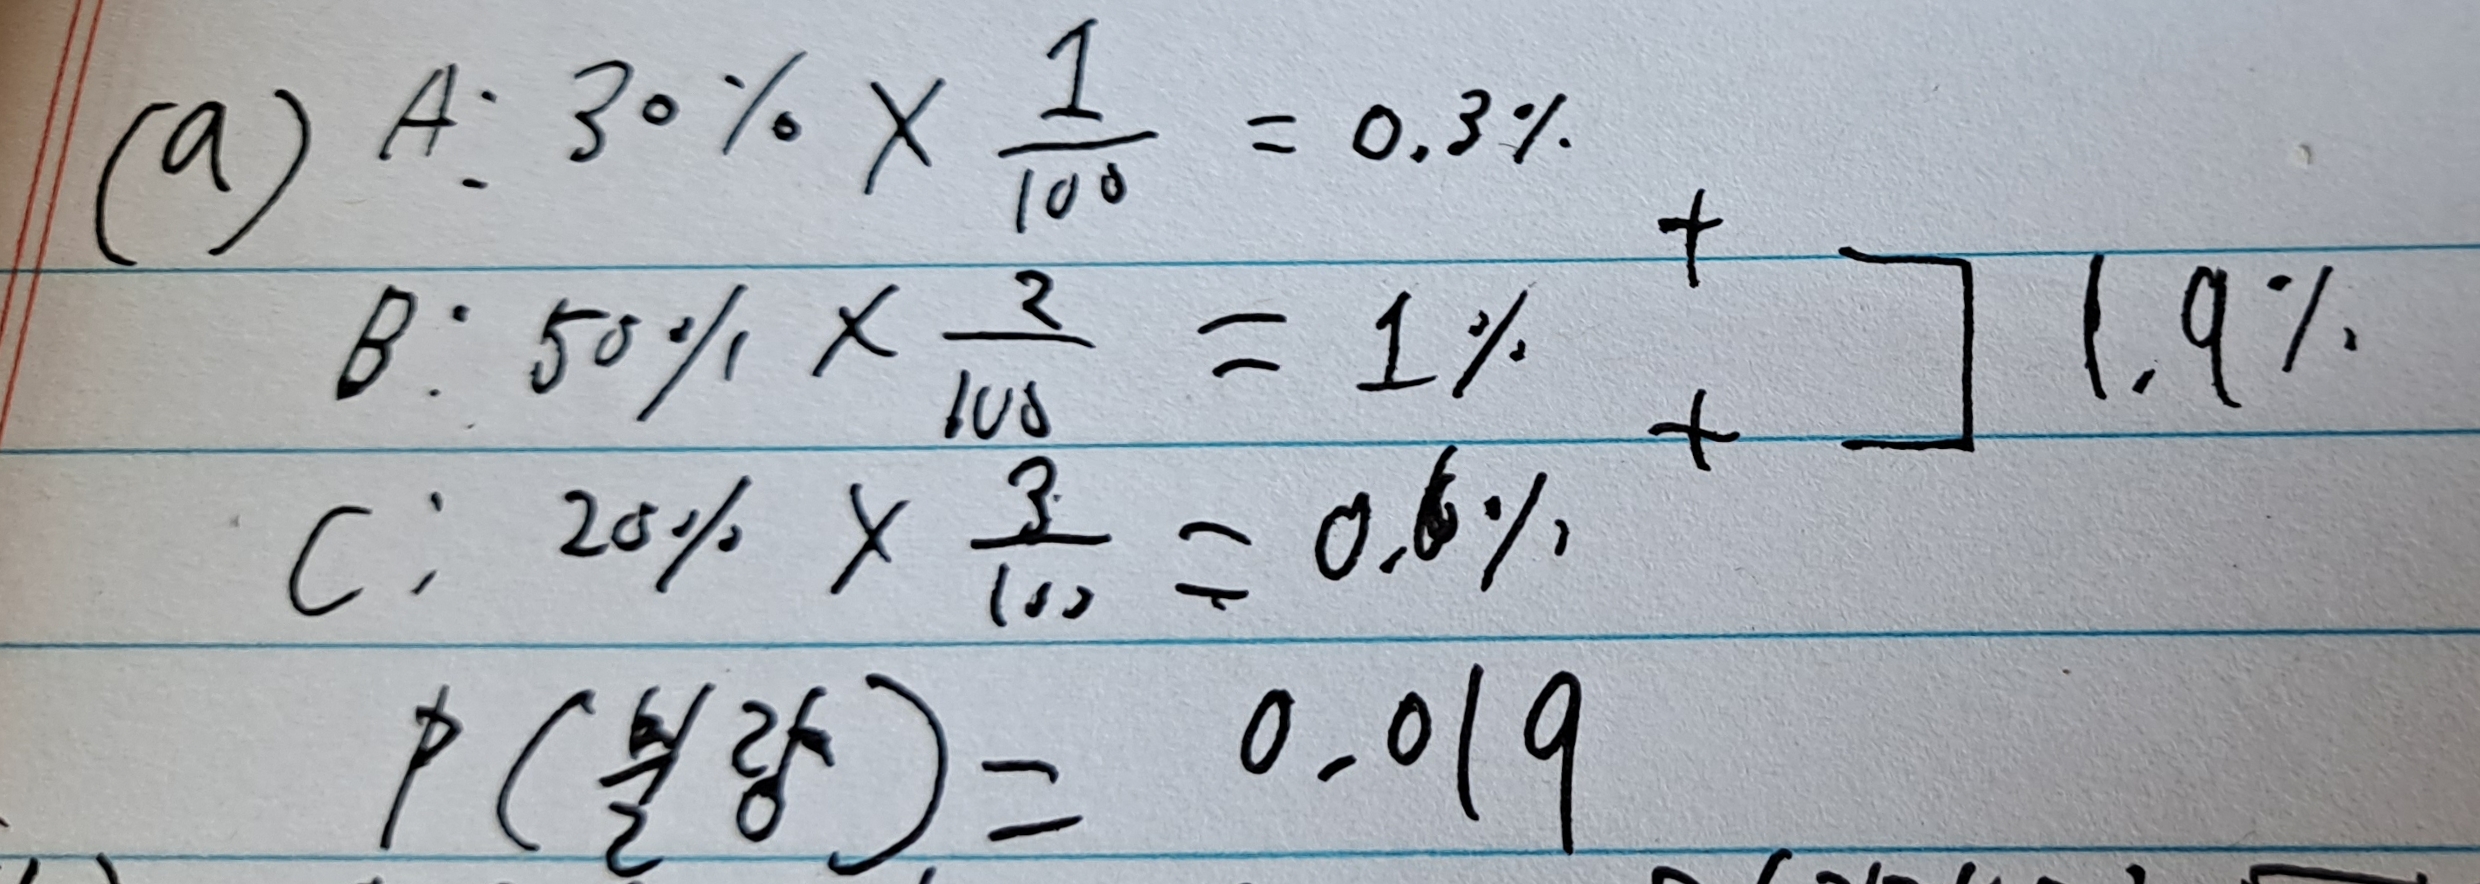 (a) A: 30% × 1/100 = 0.3%
+
B: 50% × 2/100 = 1% ] 1.9%
+
C: 20% × 3/100 = 0.6%
P(불량) = 0.019